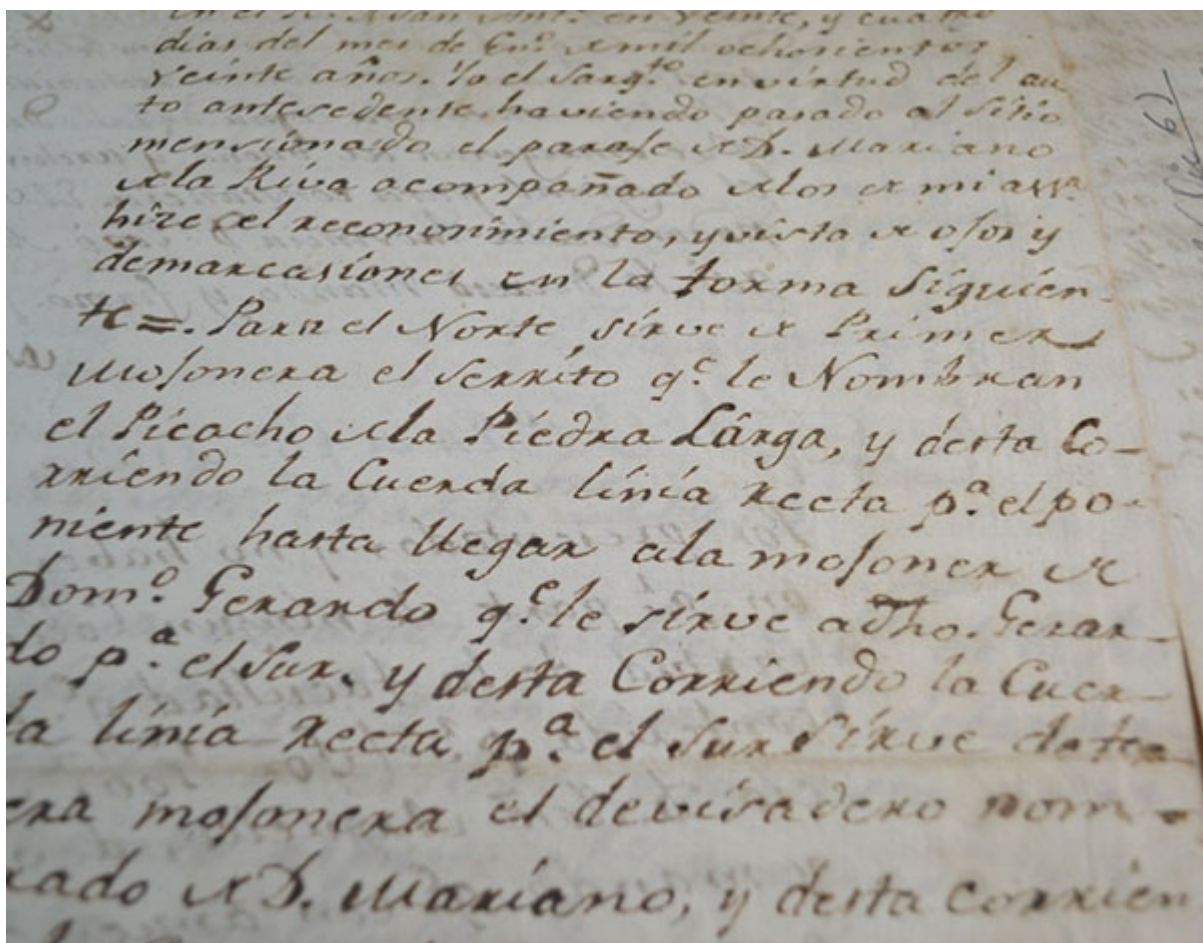 en el R. de San Ant.o en Veinte, y cuatro
dias del mes de En.o de mil ochosientos
Veinte años. Yo el Sarg.to en virtud del au
to antesedente, haviendo pasado al Sitio
mensionado el paraje de D. Mariano
de la Riva acompañado de los de mi ass.a
hize el reconosimiento, y vista de ojos y
demarcasiones en la forma Siguien-
te=. Para el Norte, sirve de Primera
mojonera el Serrito q.e le Nombran
el Picacho de la Piedra Lârga, y desta Co-
rriendo la Cuerda linia Recta p.a el po-
niente hasta llegar a la mojoner de
Dom.o Gerardo q.e le sirve a dho. Gerar-
do p.a el Sur. y desta Corriendo la Cuer-
da linia Recta p.a el Sur Sirve de ter
era mojonera el devisadero nom-
rado de D. Mariano, y desta corrien